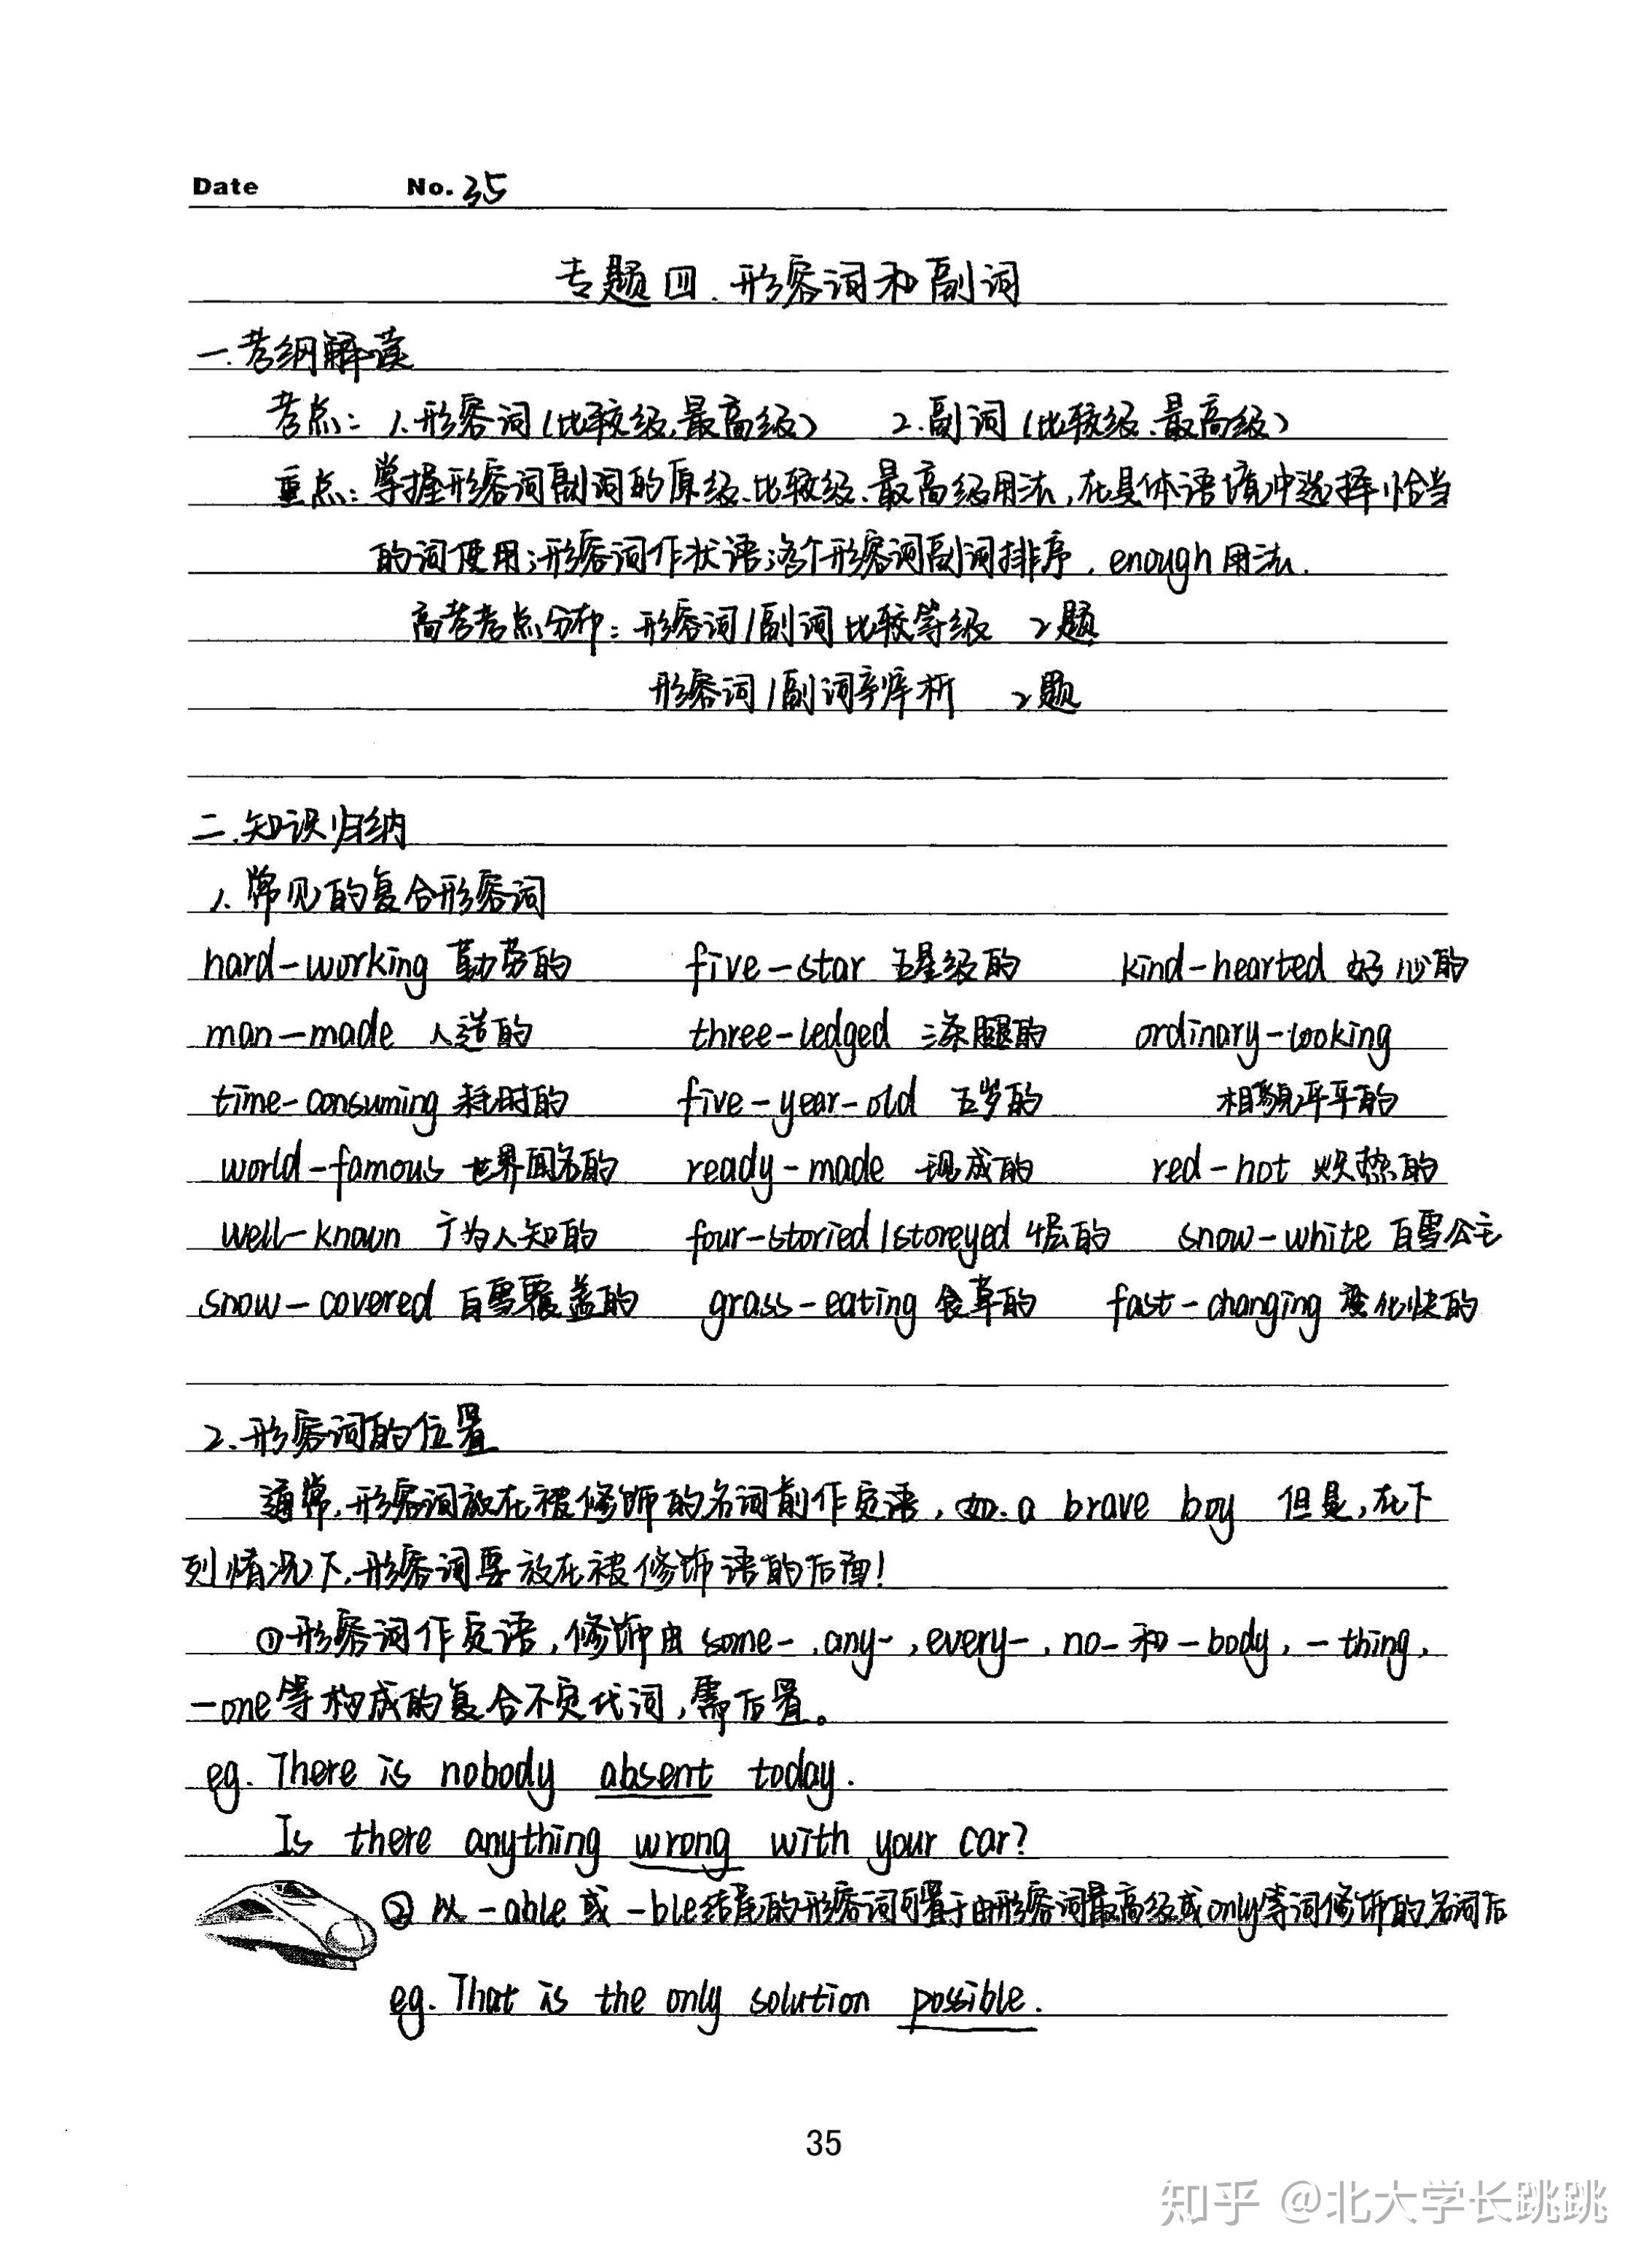 Date No. 35
专题四、形容词和副词
一.考纲解读
考点: 1.形容词(比较级、最高级) 2.副词(比较级、最高级)
重点:掌握形容词副词的原级、比较级、最高级用法,在具体语境中选择恰当
的词使用;形容词作状语;各个形容词副词排序,enough用法.
高考考点分布:形容词/副词比较等级 2题
形容词/副词辨析 2题
二.知识归纳
1.常见的复合形容词
hard-working 勤劳的 five-star 五星级的 kind-hearted 好心的
man-made 人造的 three-ledged 三条腿的 ordinary-looking
time-consuming 耗时的 five-year-old 五岁的 相貌平平的
world-famous 世界闻名的 ready-made 现成的 red-hot 炽热的
well-known 广为人知的 four-storied/storeyed 4层的 snow-white 白雪公主
snow-covered 白雪覆盖的 grass-eating 食草的 fast-changing 变化快的
2.形容词的位置
通常,形容词放在被修饰的名词前作定语,如.a brave boy 但是,在下
列情况下,形容词要放在被修饰语的后面!
①形容词作定语,修饰由some-,any-,every-,no-和-body,-thing,
-one等构成的复合不定代词,需后置。
eg. There is nobody absent today.
Is there anything wrong with your car?
②以-able或-ble结尾的形容词可置于由形容词最高级或only等词修饰的名词后
eg. That is the only solution possible.
35
知乎 @北大学长跳跳